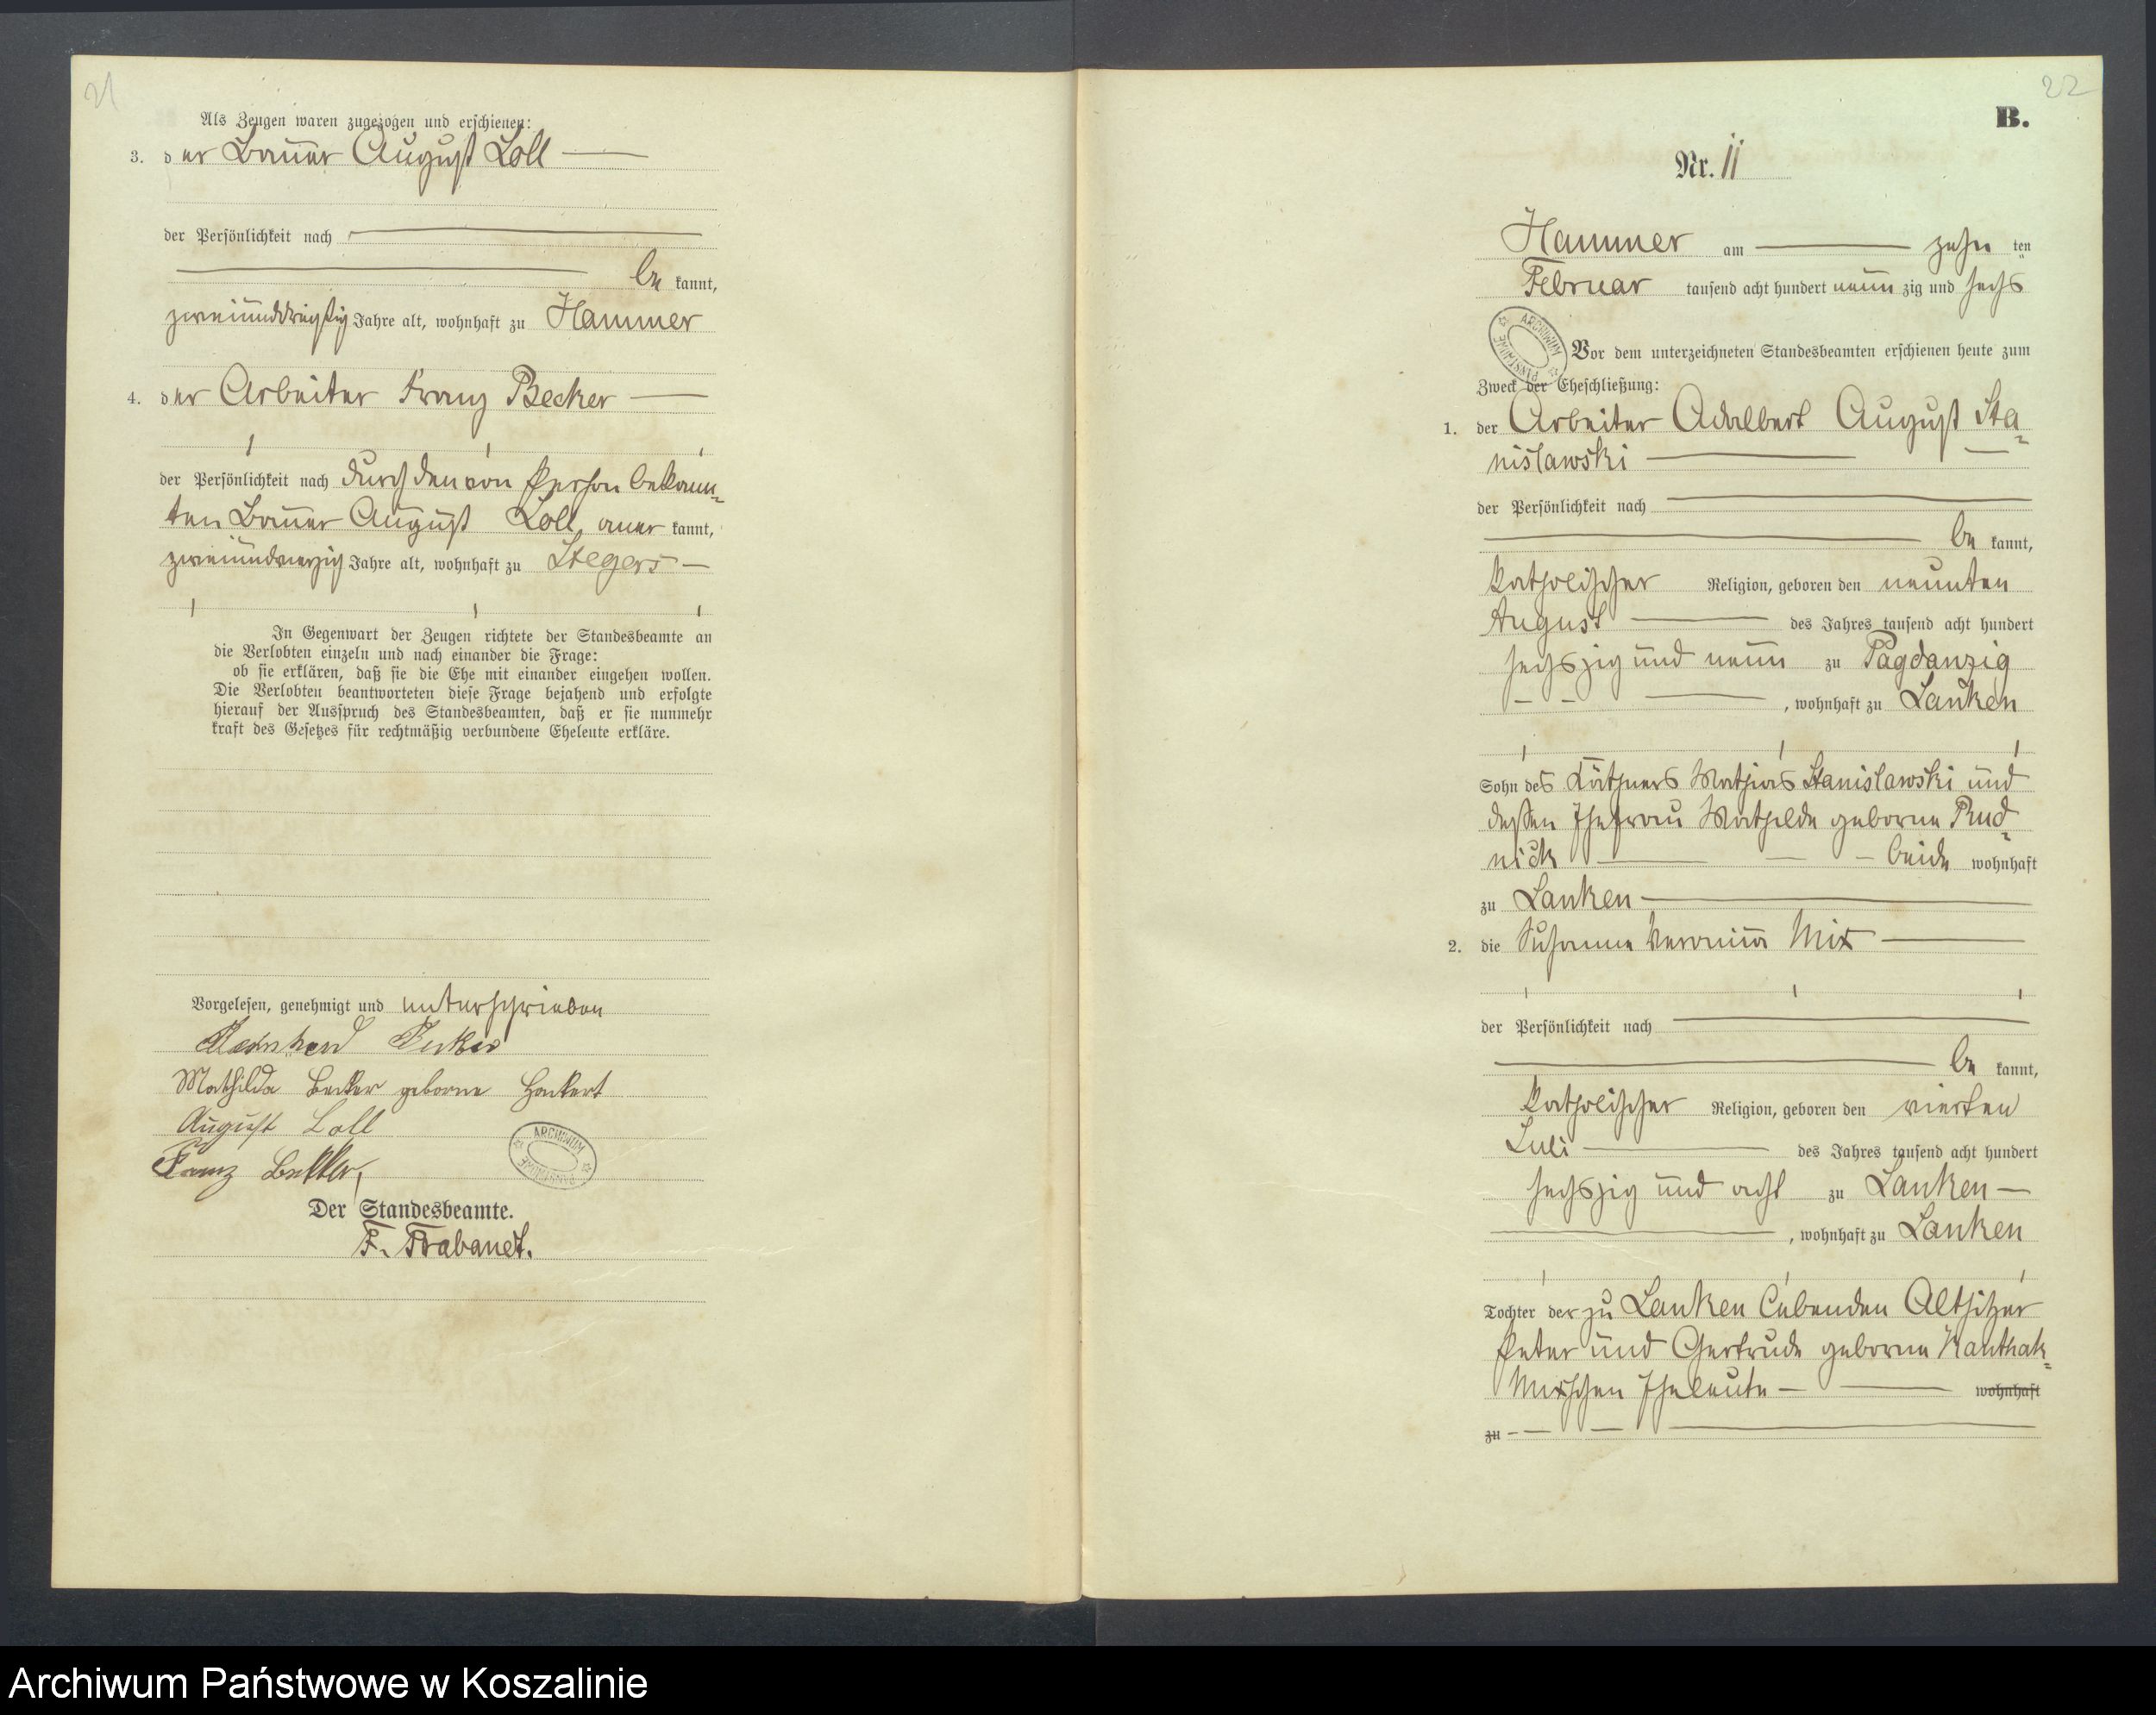 21
Als Zeugen waren zugezogen und erschienen:
3. der Bauer August Loll
der Persönlichkeit nach
be kannt,
zweiunddreißig Jahre alt, wohnhaft zu Hammer
4. der Arbeiter Franz Becker
der Persönlichkeit nach durch den von Person bekann-
ten Bauer August Loll, aner kannt,
zweiundvierzig Jahre alt, wohnhaft zu Stegers
In Gegenwart der Zeugen richtete der Standesbeamte an
die Verlobten einzeln und nach einander die Frage:
ob sie erklären, daß sie die Ehe mit einander eingehen wollen.
Die Verlobten beantworteten diese Frage bejahend und erfolgte
hierauf der Ausspruch des Standesbeamten, daß er sie nunmehr
kraft des Gesetzes für rechtmäßig verbundene Eheleute erkläre.
Vorgelesen, genehmigt und unterschrieben
Mathilda Becker geborne
August Loll
Franz Becker,
ARCHIWUM PAŃSTWOWE
Der Standesbeamte.
F. Trabandt.
22
B.
Nr. 11
Hammer am zehn ten
Februar tausend acht hundert neun zig und sechs
ARCHIWUM PAŃSTWOWE
Vor dem unterzeichneten Standesbeamten erschienen heute zum
Zweck der Eheschließung:
1. der Arbeiter Adalbert August Sta-
nislawski
der Persönlichkeit nach
be kannt,
katholischer Religion, geboren den neunten
August des Jahres tausend acht hundert
sechszig und neun zu Pagdanzig
, wohnhaft zu Lanken
Sohn des Käthners Mathias Stanislawski und
dessen Ehefrau Mathilde geborne Rud-
nick beide wohnhaft
zu Lanken
2. die Susanna Veronika Mix
der Persönlichkeit nach
be kannt,
katholischer Religion, geboren den vierten
Juli des Jahres tausend acht hundert
sechszig und acht zu Lanken
, wohnhaft zu Lanken
Tochter der zu Lanken lebenden Altsitzer
Peter und Gertrude geborne Kanthak-
Mixschen Eheleute wohnhaft
zu
Archiwum Państwowe w Koszalinie